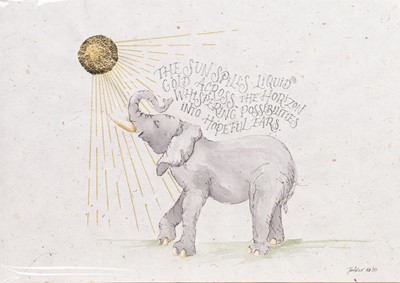 THE SUN SPILLS LIQUID
GOLD ACROSS THE HORIZON
WHISPERING POSSIBILITIES
INTO HOPEFUL EARS.